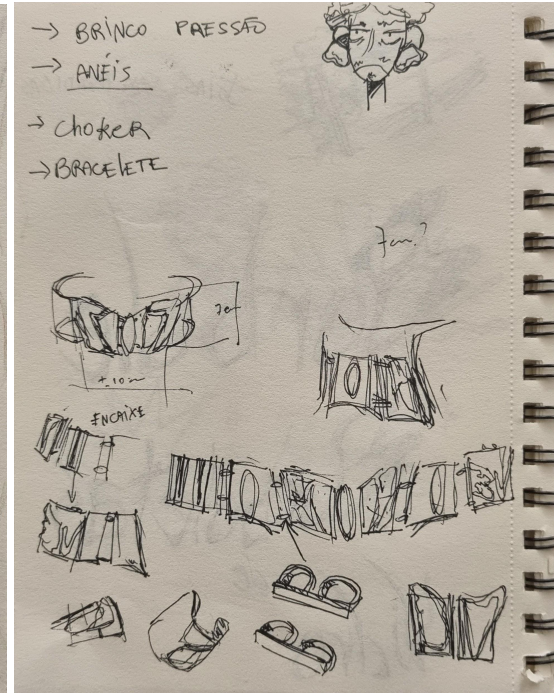 → BRINCO PRESSÃO
→ ANÉIS
→ CHOKER
→ BRACELETE
7cm?
± 10cm
ENCAIXE